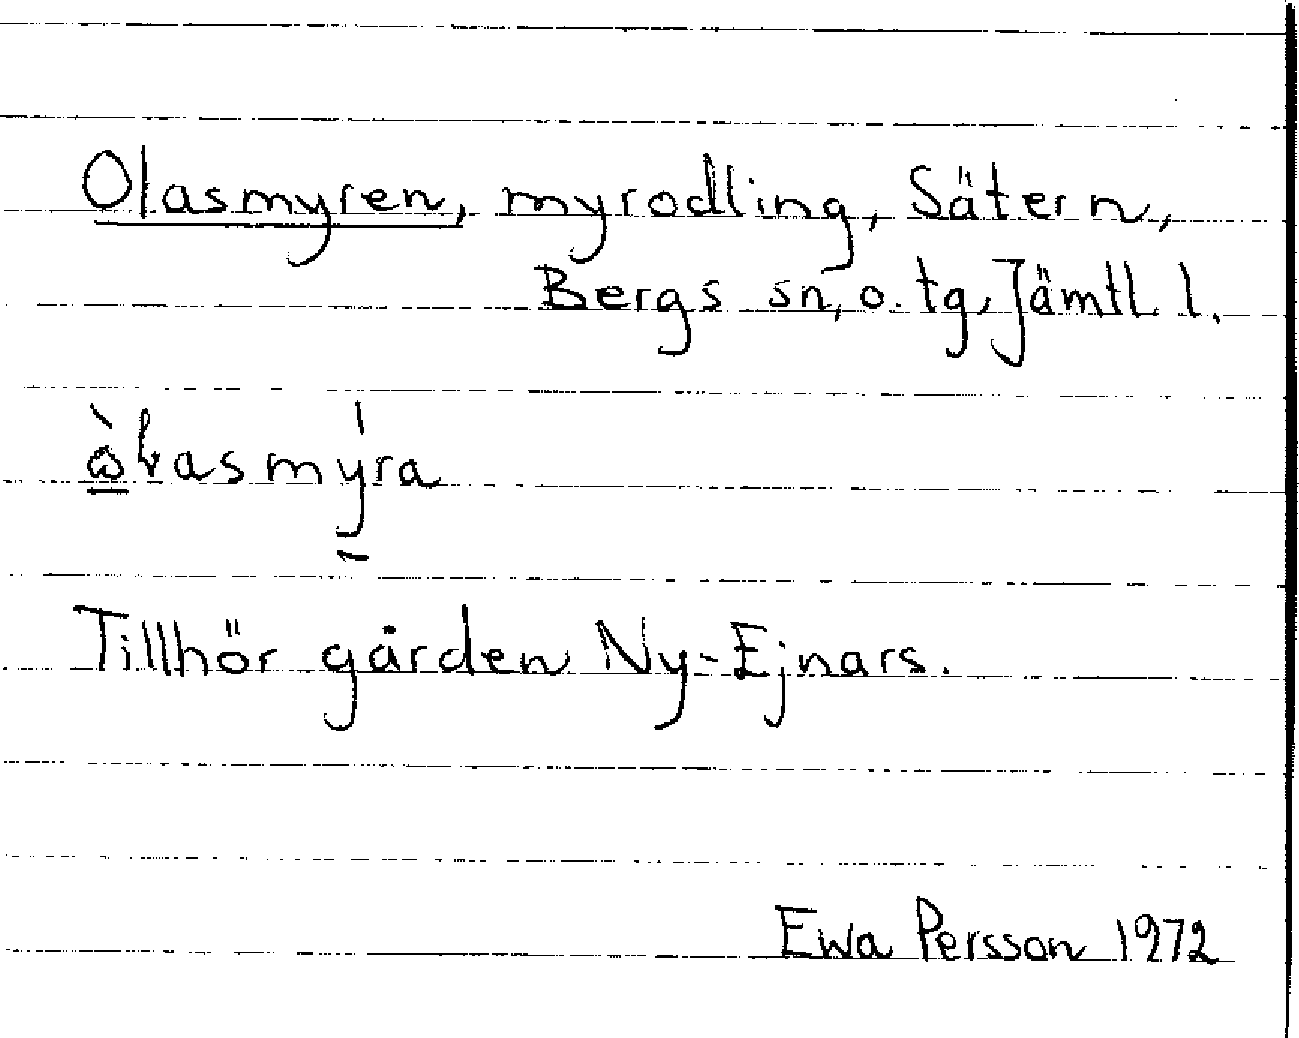 Olasmyren, myrodling, Sätern,
Bergs sn, o. tg, Jämtl l.
Tillhör gården Ny-Ejnars.
Ewa Persson 1972